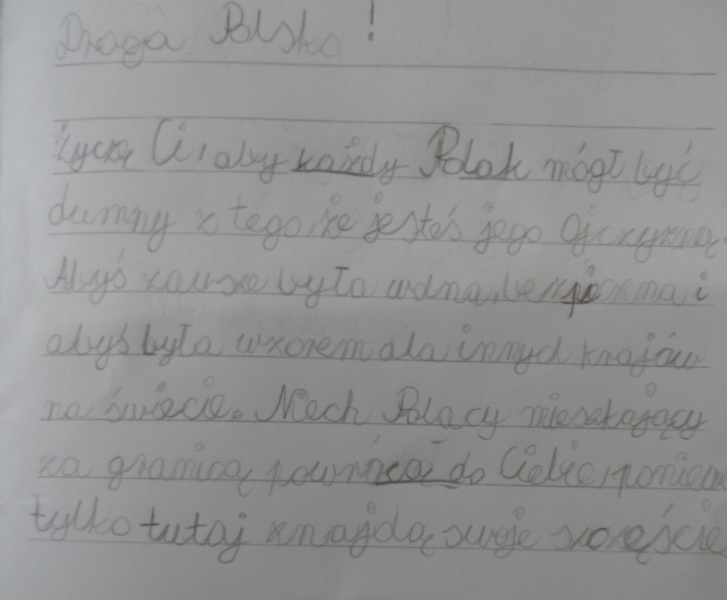 Droga Polsko!
Życzę Ci, aby każdy Polak mógł być
dumny z tego, że jesteś jego Ojczyzną.
Abyś zawsze była wolna, bezpieczna i
abyś była wzorem dla innych krajów
na świecie. Niech Polacy mieszkający
za granicą powrócą do Ciebie, ponieważ
tylko tutaj znajdą swoje szczęście